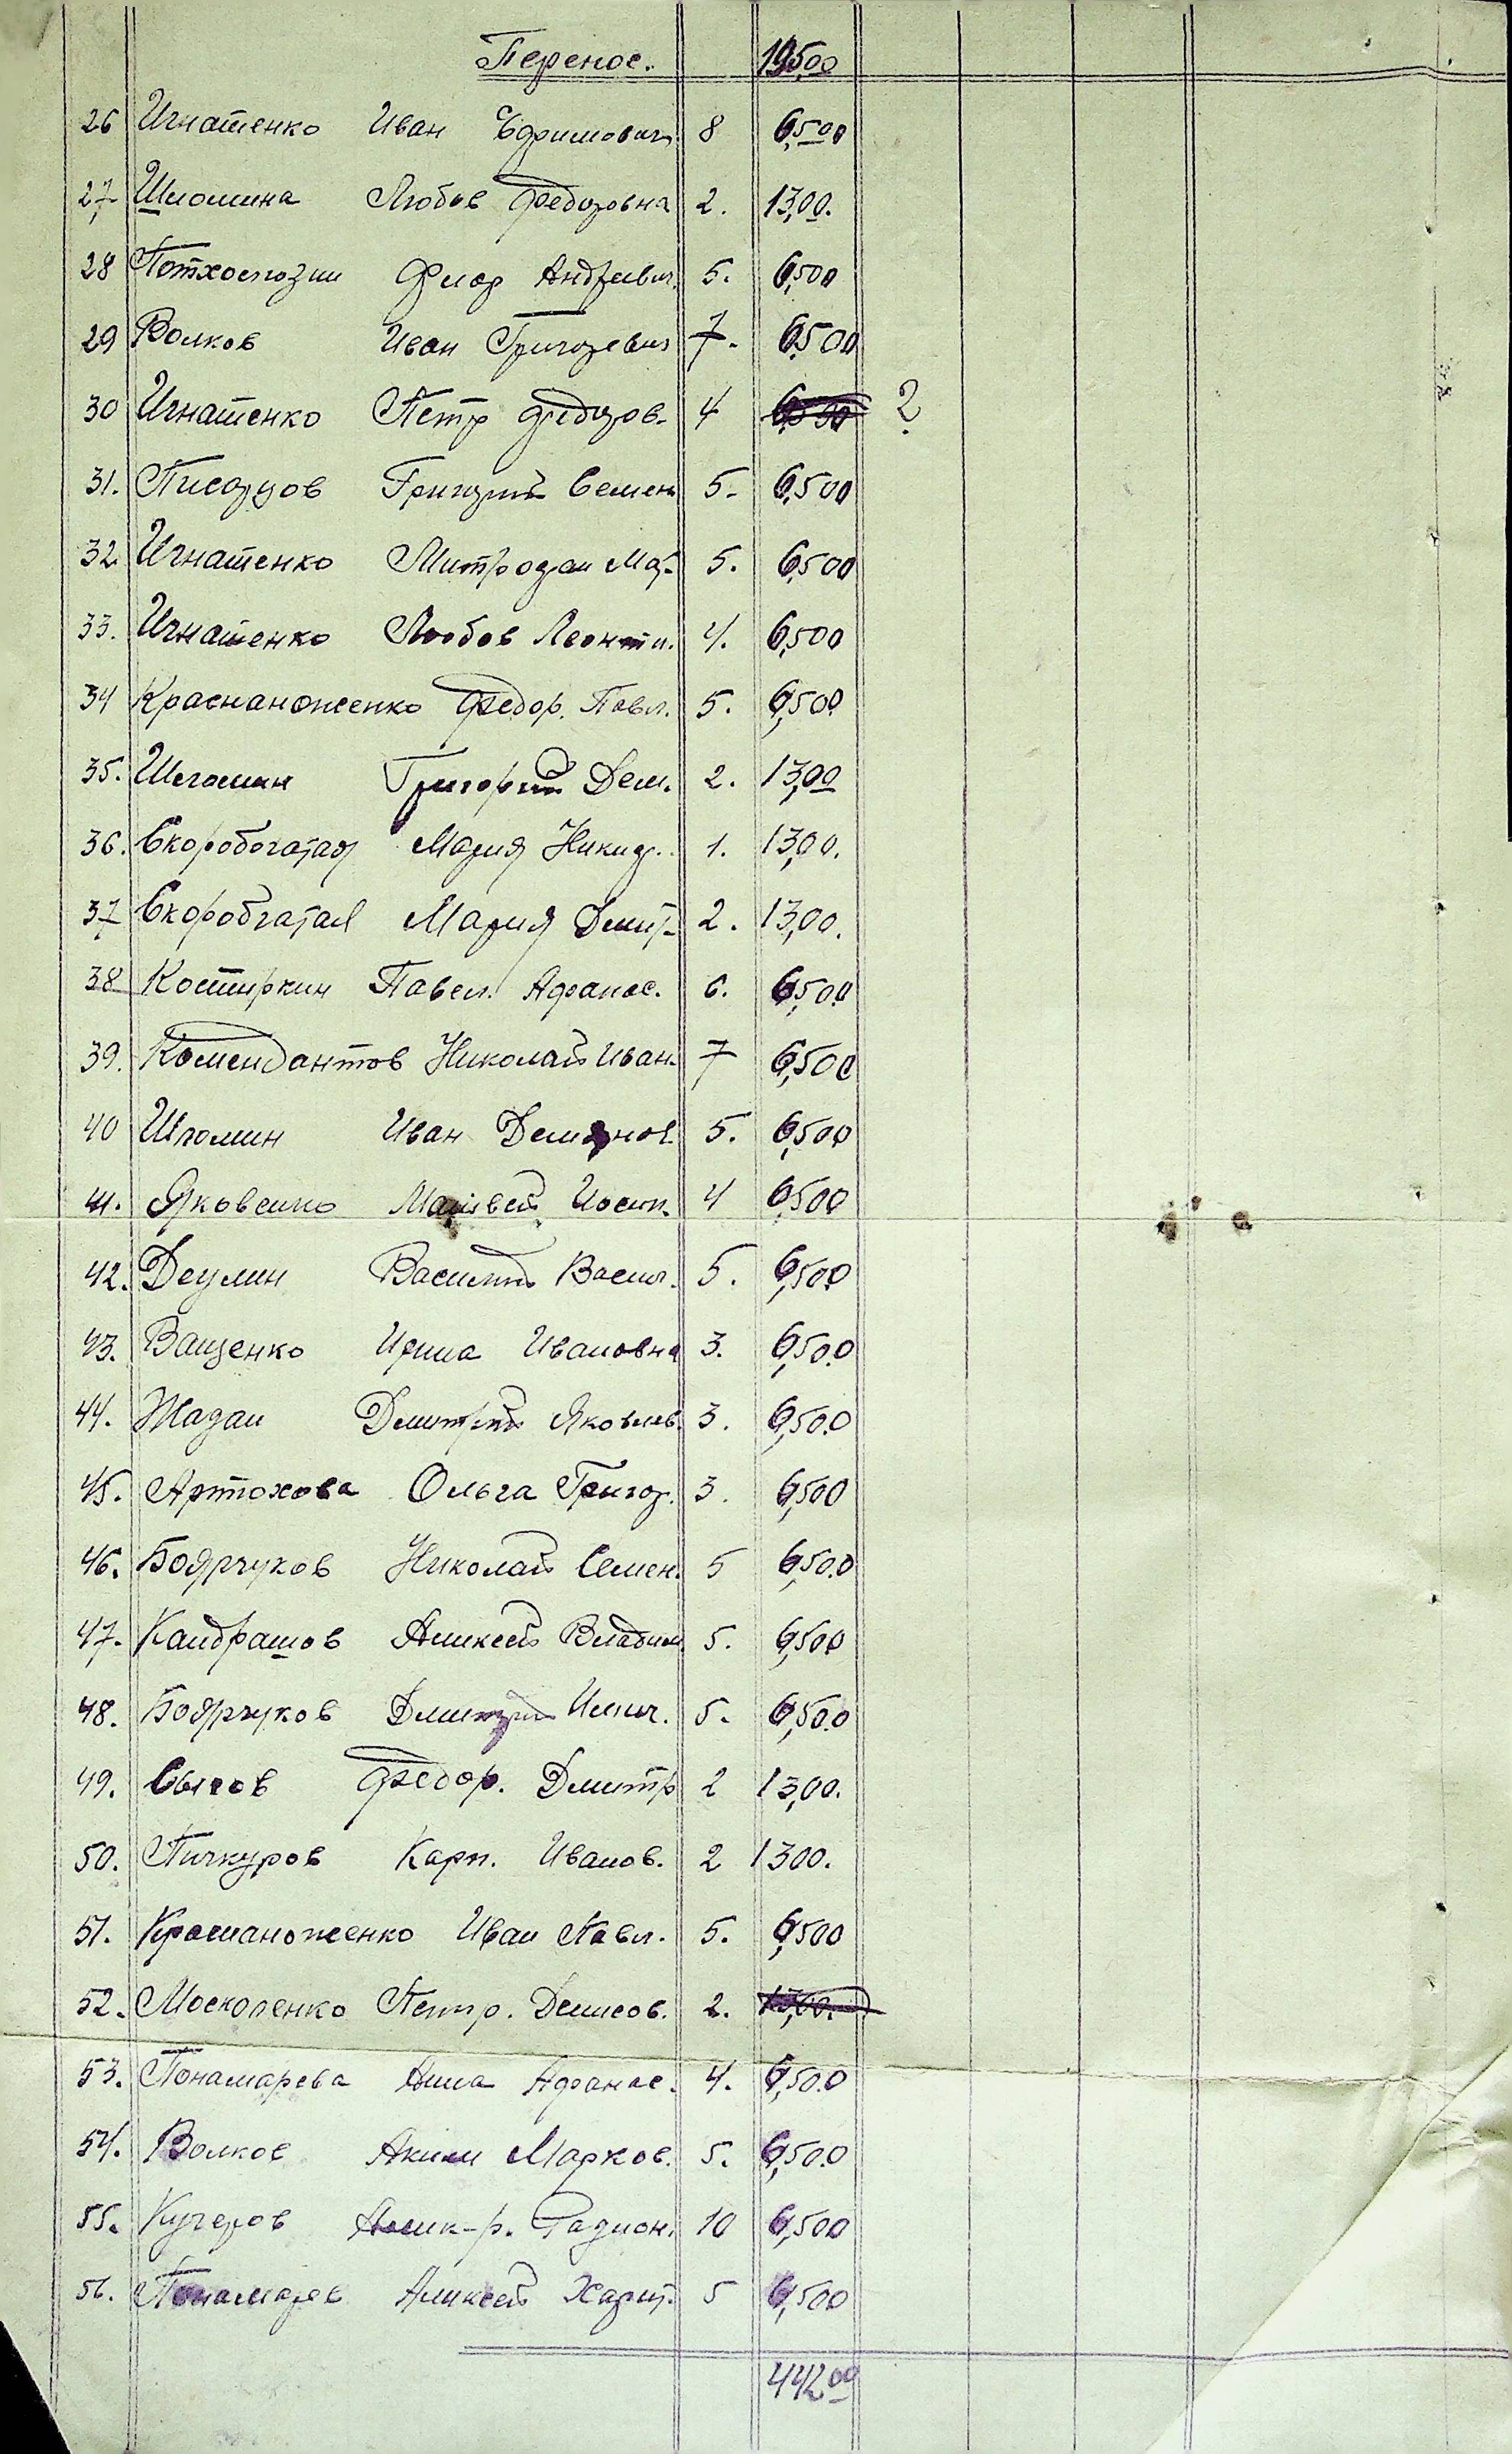 Перенос. 195,00
26 Игнатенко Иван Ефимович 8 6,500
27 Шломина Любов Федоровна 2. 13,00.
28 Андреевич. 5. 6,500
29 Волков Иван Григоревич 7. 6,500
30 Игнатенко Петр Федоров. 4 ?
31. Писарцов Григорий Семен 5. 6,500
32 Игнатенко Митрофан 5. 6,500
33. Игнатенко Любов Леонти. 4. 6,500
34 Краснаноженко Федор. Павл. 5. 6,500
35. Григорий Дем. 2. 13,00
36. Скоробогатая Мария Никиф. 1. 13,00.
37 Скоробгатая Мария Дмит. 2. 13,00.
38 Костиркин Павел. Афанас. 6. 6,500
39. Комендантов Николай Иван. 7 6,500
40 Шломин Иван Демянов. 5. 6,500
41. Яковенко Матвей Иосип. 4 6,500
42. Деулин Василий Васил. 5. 6,500
43. Ващенко Ирина Ивановна 3. 6,500
44. Жадан Дмитрий Яковлев. 3. 6,500
45. Артюхова Ольга Григор. 3. 6,500
46. Боярчуков Николай Семен. 5 6,500
47. Кандрашов Алексей Владим. 5. 6,500
48. Боярчуков Дмитрий Илич. 5. 6,500
49. Сысов Федор. Дмитр 2 13,00.
50. Пичкуров Карп. Иванов. 2 1300.
51. Красманоженко Иван Павл. 5. 6,500
52. Москоленко Петр. Денисов. 2. 13,00.
53. Понамарева Анна Афанас. 4. 6,500
54. Волков Аким Марков. 5. 6,500
55. Кучеров Алек-р. Радион. 10 6,500
56. Понамарев Алексей Харит. 5 6,500
442.00